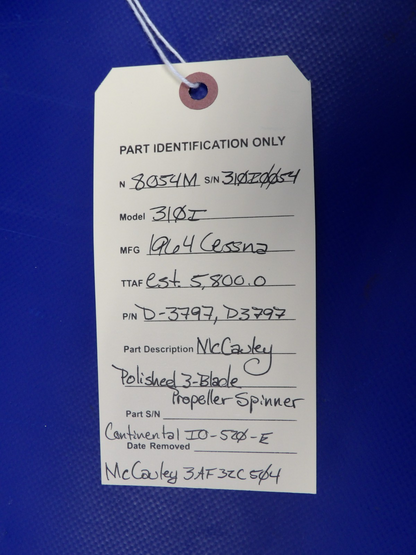 PART IDENTIFICATION ONLY
N 8054M S/N 310I0054
Model 310I
MFG 1964 Cessna
TTAF est. 5,800.0
P/N D-3797, D3797
Part Description McCauley
Polished 3-Blade
Propeller Spinner
Part S/N
Continental IO-520-E
Date Removed
McCauley 3AF32C504